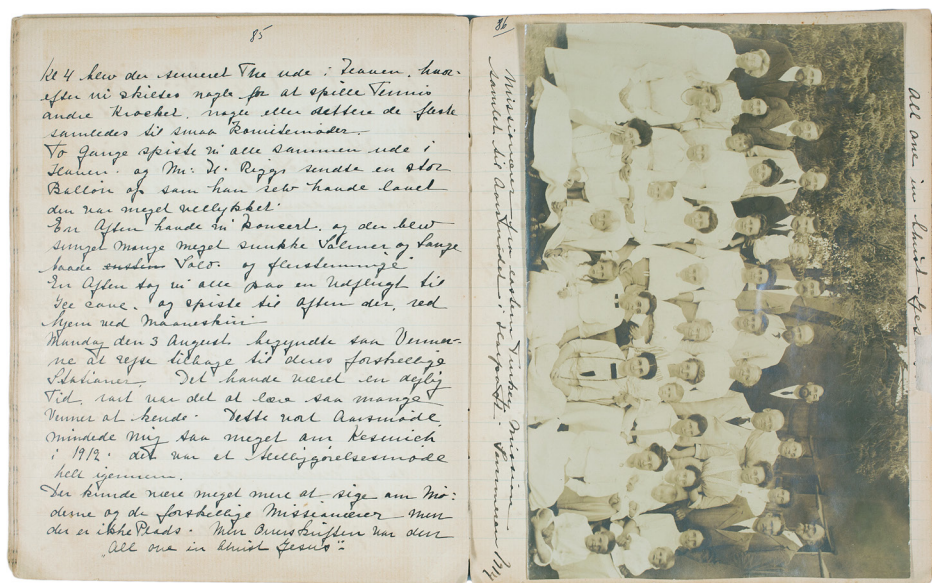 85
Kl 4 blev der serveret The ude i Haven, hvor-
efter vi skiltes nogle for at spille Tennis
andre Krocket, nogle eller sattere de fleste
samledes til smaa Komitemøder.
To Gange spiste vi alle sammen ude i
Haven. og Mr. H. Riggs sendte en stor
Ballon op som han selv havde lavet
den var meget vellykket.
En Aften havde vi Koncert, og der blev
sunget mange meget smukke Salmer og Sange
baade Solo. og flerstemmige.
En Aften tog vi alle paa en Udflugt til
cave, og spiste til Aften der, red
hjem ved Maaneskin.
Mandag den 3 August begyndte saa Venner-
ne at rejse tilbage til deres forskellige
Stationer. Det havde været en dejlig
Tid, rart var det at lære saa mange
Venner at kende. Dette vort Aarsmøde,
mindede mig saa meget om Keswick
i 1912. det var et Helliggørelsesmøde
helt igennem.
Der kunde være meget mere at sige om Mø-
derne og de forskellige Missionærer men
der er ikke Plads. Men Overskriften var den
"All one in Christ Jesus".
86
Missionærer fra eastern Turkey Mission
samlet til Aarsmødet i Harpoot. Sommeren 1914
All one in Christ - Jes